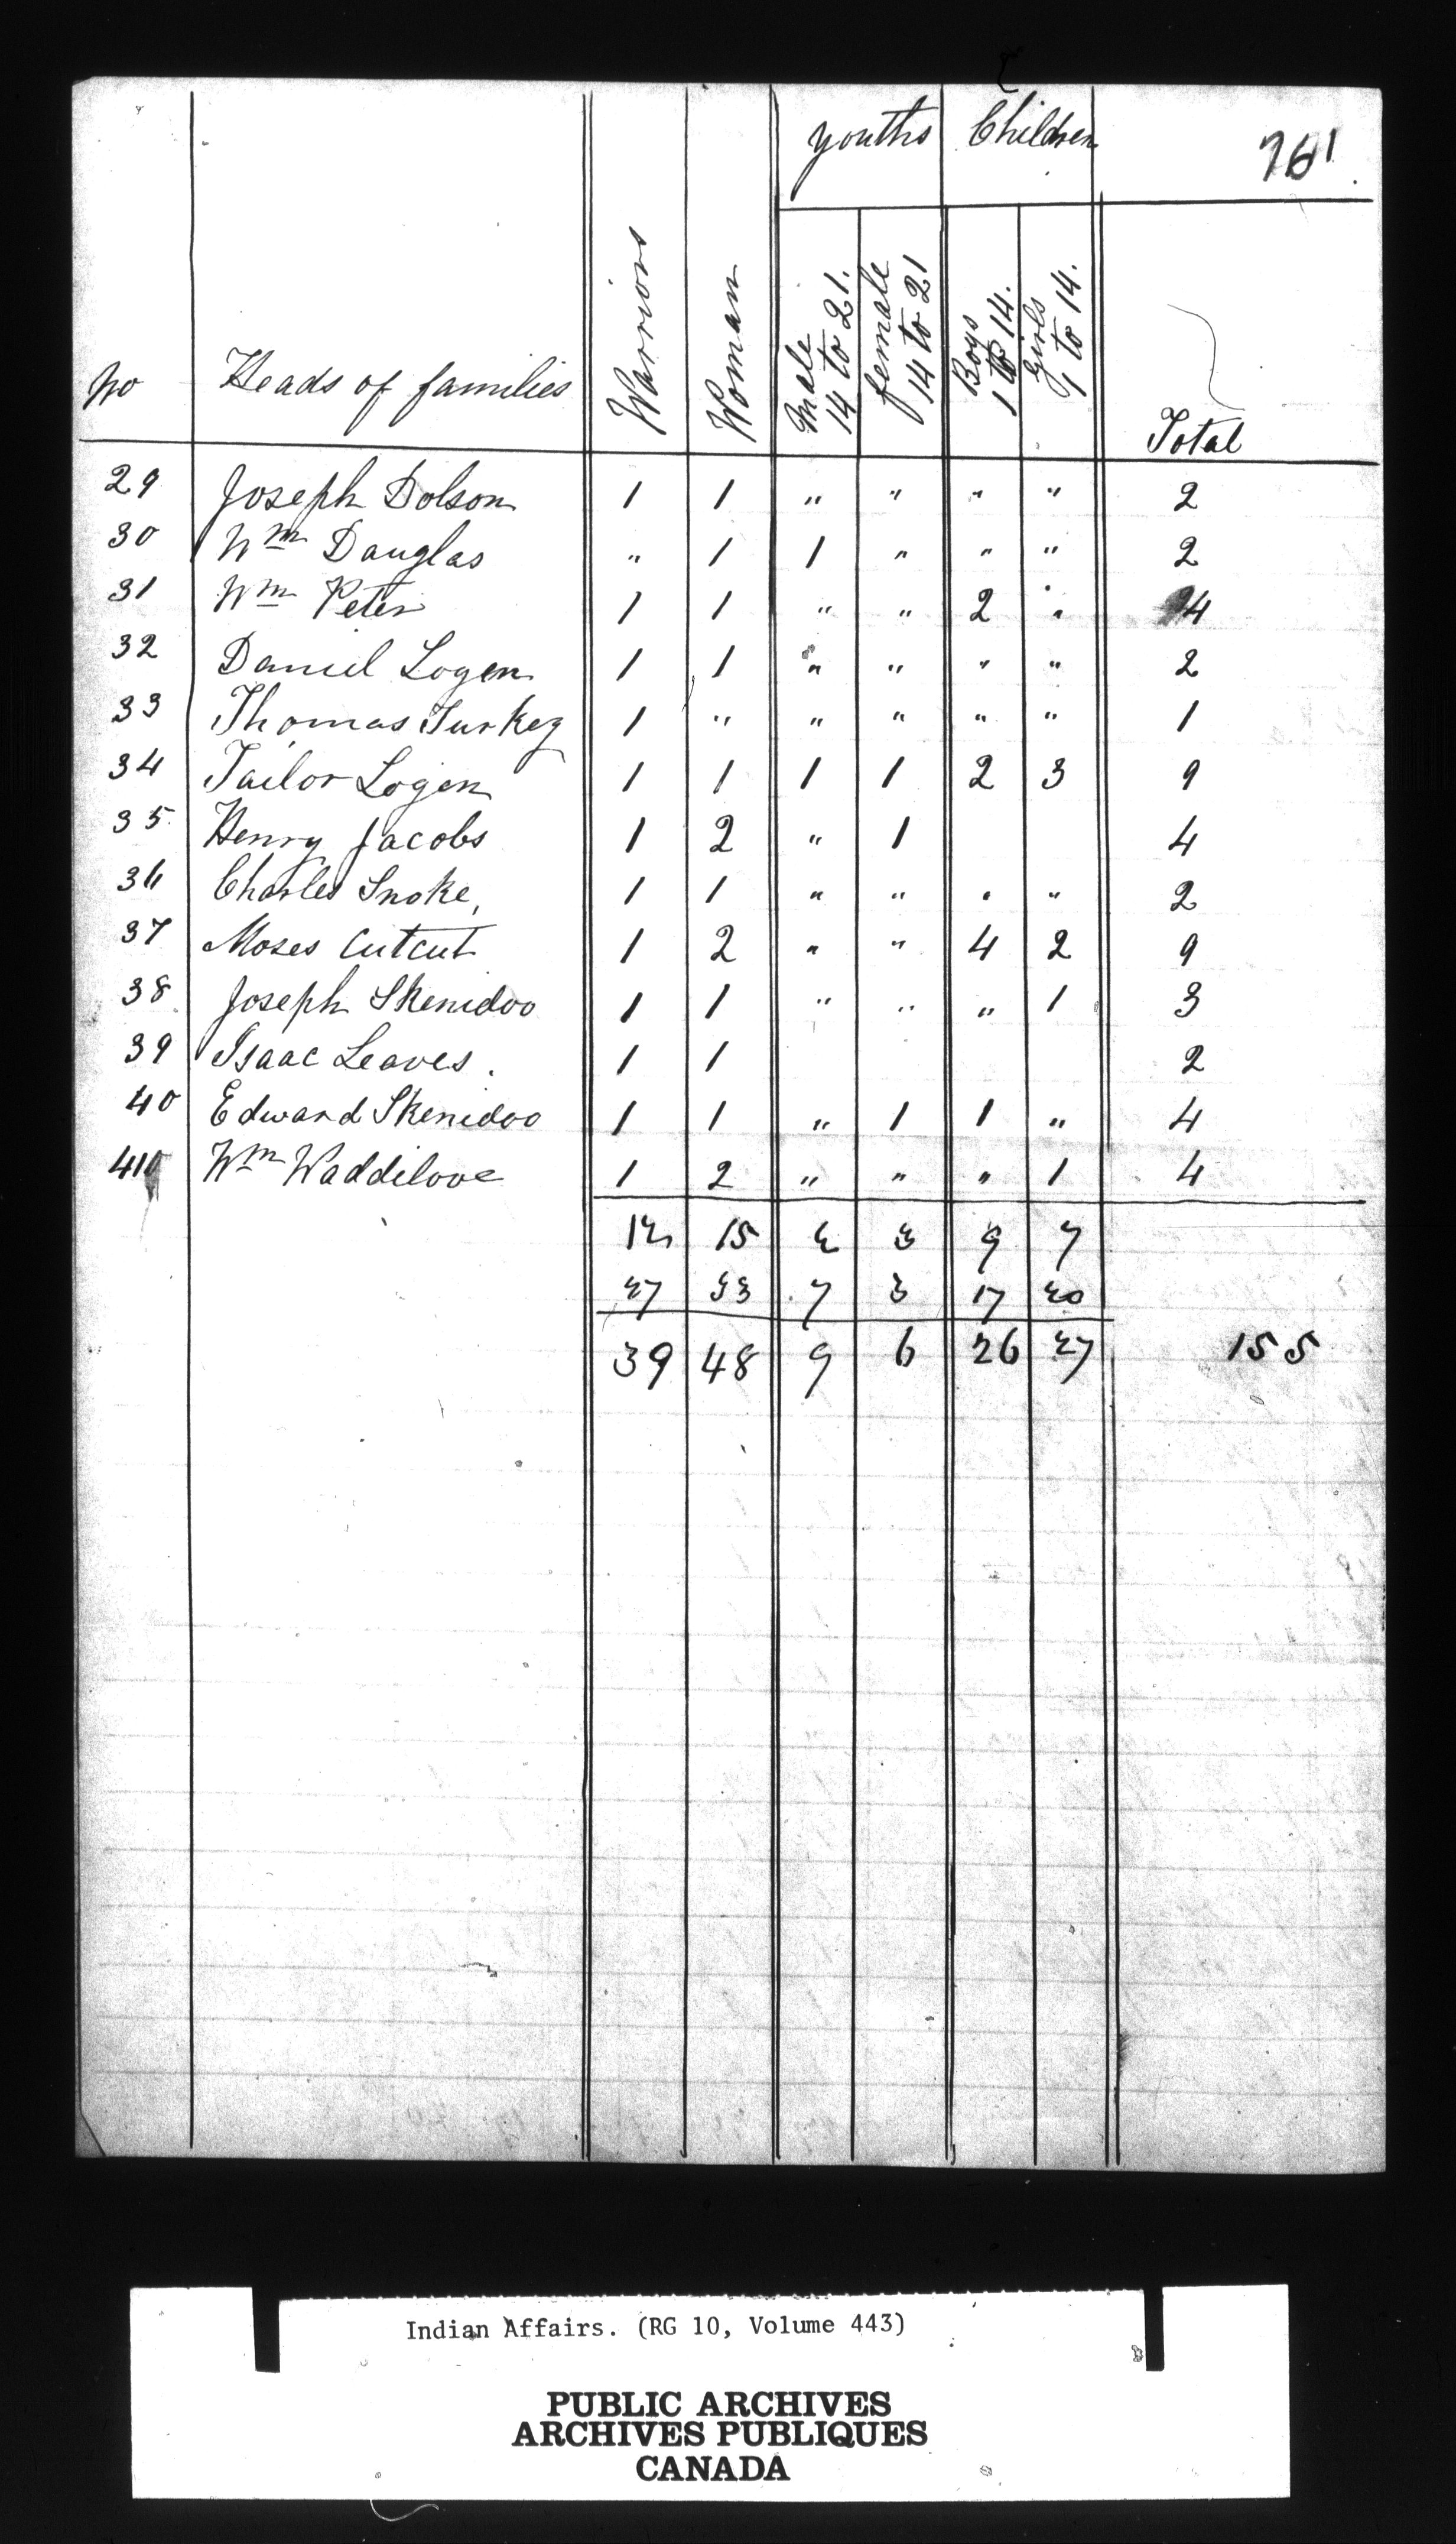 youths Children 761
No Heads of families Warriors Woman Male 14 to 21. female 14 to 21 Boys 1 to 14. Girls 1 to 14. Total
29 Joseph Dolson 1 1 " " " " 2
30 Wm Dauglas " 1 1 " " " 2
31 Wm Peter 1 1 " " 2 " 4
32 Daniel Logen 1 1 " " " " 2
33 Thomas Turkey 1 " " " " " 1
34 Tailor Logen 1 1 1 1 2 3 9
35 Henry Jacobs 1 2 " 1 4
36 Charles Snoke, 1 1 " " " " 2
37 Moses Cutcut 1 2 " " 4 2 9
38 Joseph Skenidoo 1 1 " " " 1 3
39 Isaac Leaves. 1 1 2
40 Edward Skenidoo 1 1 " 1 1 " 4
41 Wm Waddilove 1 2 " " " 1 4
12 15 2 3 9 7
27 33 7 3 17 20
39 48 9 6 26 27 155
Indian Affairs. (RG 10, Volume 443)
PUBLIC ARCHIVES
ARCHIVES PUBLIQUES
CANADA